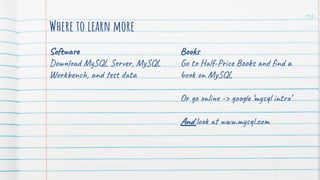 Where to learn more
Software
Download MySQL Server, MySQL
Workbench, and test data
Books
Go to Half-Price Books and find a
book on MySQL
Or go online -> google 'mysql intro'
And look at www.mysql.com